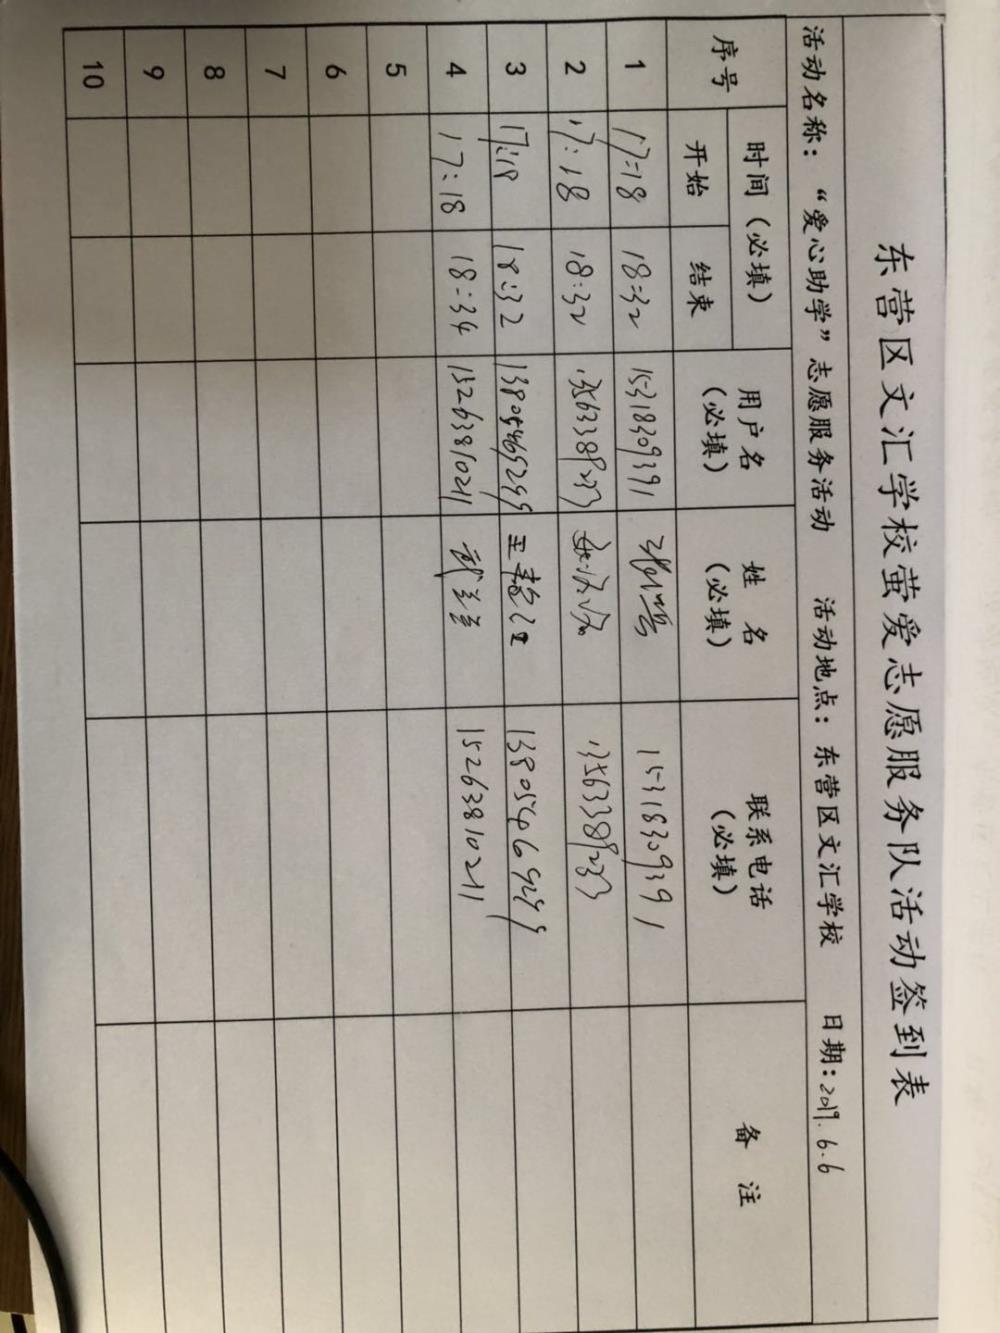 东营区文汇学校萤爱志愿服务队活动签到表
活动名称：“爱心助学”志愿服务活动 活动地点：东营区文汇学校 日期：2019.6.6
序号 时间（必填） 用户名（必填） 姓名（必填） 联系电话（必填） 备注
开始 结束
1 17:18 18:32 15318309391 15318309391
2 17:18 18:32 13563389233 13563389233
3 17:18 18:32 13805469299 13805469299
4 17:18 18:34 15263810211 15263810211
5
6
7
8
9
10